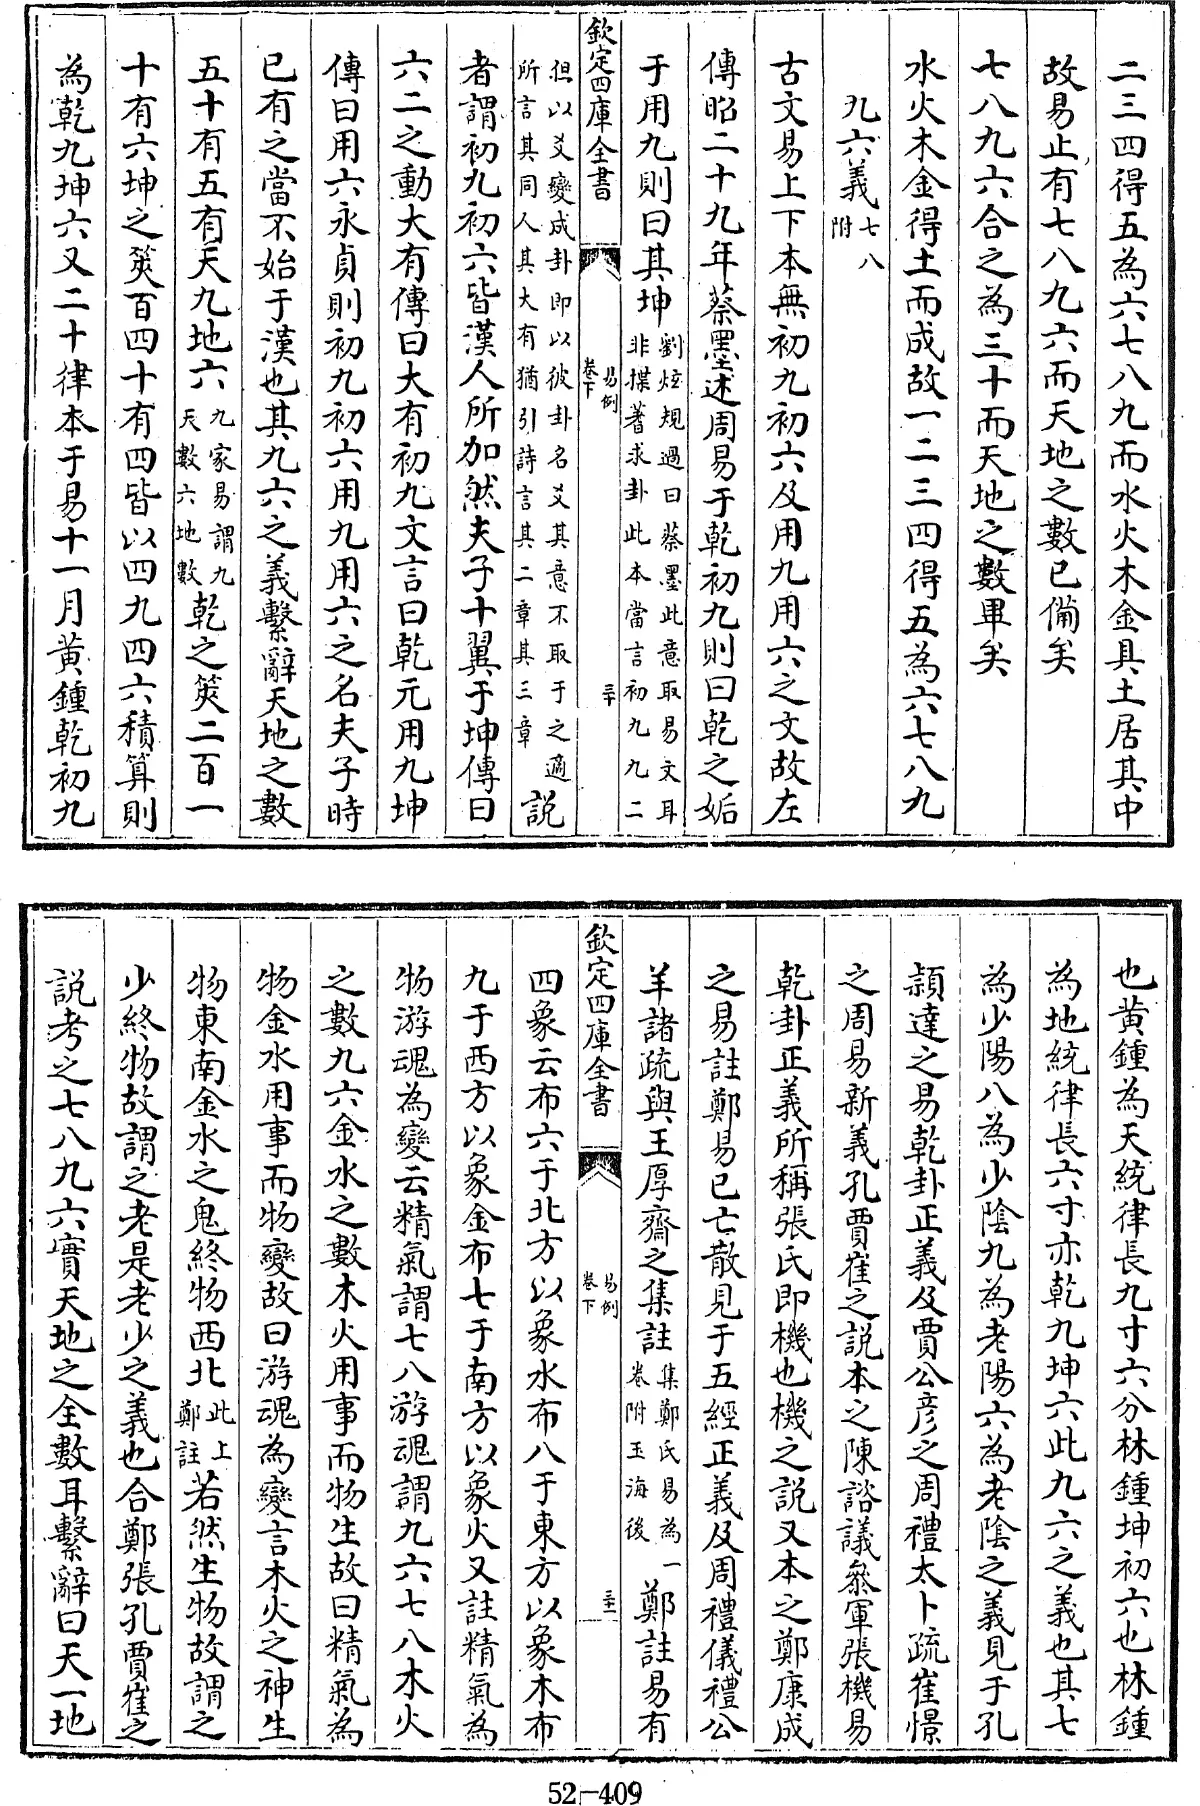 二三四得五為六七八九而水火木金具土居其中
故易止有七八九六而天地之數已備矣
七八九六合之為三十而天地之數畢矣
水火木金得土而成故一二三四得五為六七八九
九六義七八附
古文易上下本無初九初六及用九用六之文故左
傳昭二十九年蔡墨述周易于乾初九則曰乾之姤
于用九則曰其坤劉炫規過曰蔡墨此意取易文耳非揲蓍求卦此本當言初九九二
欽定四庫全書
易例卷下
三十
但以爻變成卦即以彼卦名爻其意不取于之適所言其同人其大有猶引詩言其二章其三章說
者謂初九初六皆漢人所加然夫子十翼于坤傳曰
六二之動大有傳曰大有初九文言曰乾元用九坤
傳曰用六永貞則初九初六用九用六之名夫子時
已有之當不始于漢也其九六之義繫辭天地之數
五十有五有天九地六九家易謂九天數六地數乾之筴二百一
十有六坤之筴百四十有四皆以四九四六積算則
為乾九坤六又二十律本于易十一月黃鍾乾初九
也黃鍾為天統律長九寸六分林鍾坤初六也林鍾
為地統律長六寸亦乾九坤六此九六之義也其七
為少陽八為少陰九為老陽六為老陰之義見于孔
穎達之易乾卦正義及賈公彥之周禮太卜疏崔憬
之周易新義孔賈崔之說本之陳諮議叅軍張機易
乾卦正義所稱張氏即機也機之說又本之鄭康成
之易註鄭易已亡散見于五經正義及周禮儀禮公
羊諸疏與王厚齋之集註集鄭氏易為一卷附玉海後鄭註易有
欽定四庫全書
易例卷下
三十一
四象云布六于北方以象水布八于東方以象木布
九于西方以象金布七于南方以象火又註精氣為
物游魂為變云精氣謂七八游魂謂九六七八木火
之數九六金水之數木火用事而物生故曰精氣為
物金水用事而物變故曰游魂為變言木火之神生
物東南金水之鬼終物西北此上鄭註若然生物故謂之
少終物故謂之老是老少之義也合鄭張孔賈崔之
說考之七八九六實天地之全數耳繫辭曰天一地
52-409